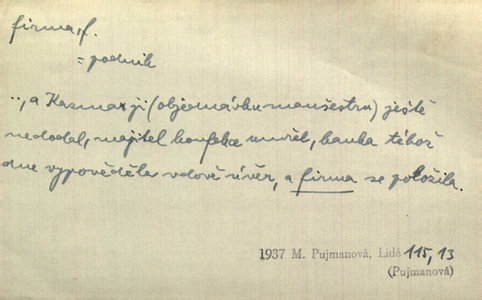 firma, f.
= podnik
.., a Kazmar ji (objednávku manšestru) ještě
nedodal, majitel konfekce umřel, banka téhož
dne vypověděla vdově úvěr, a firma se položila.
1937 M. Pujmanová, Lidé 115, 13
(Pujmanová)